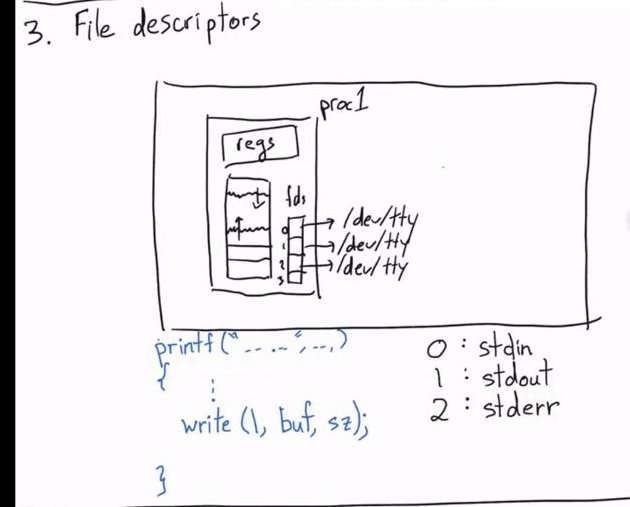 3. File descriptors
proc1
regs
fds
0 → /dev/tty
1 → /dev/tty
2 → /dev/tty
3
printf("-- --", --,)
{
⋮
write (1, buf, sz);
}
0 : stdin
1 : stdout
2 : stderr